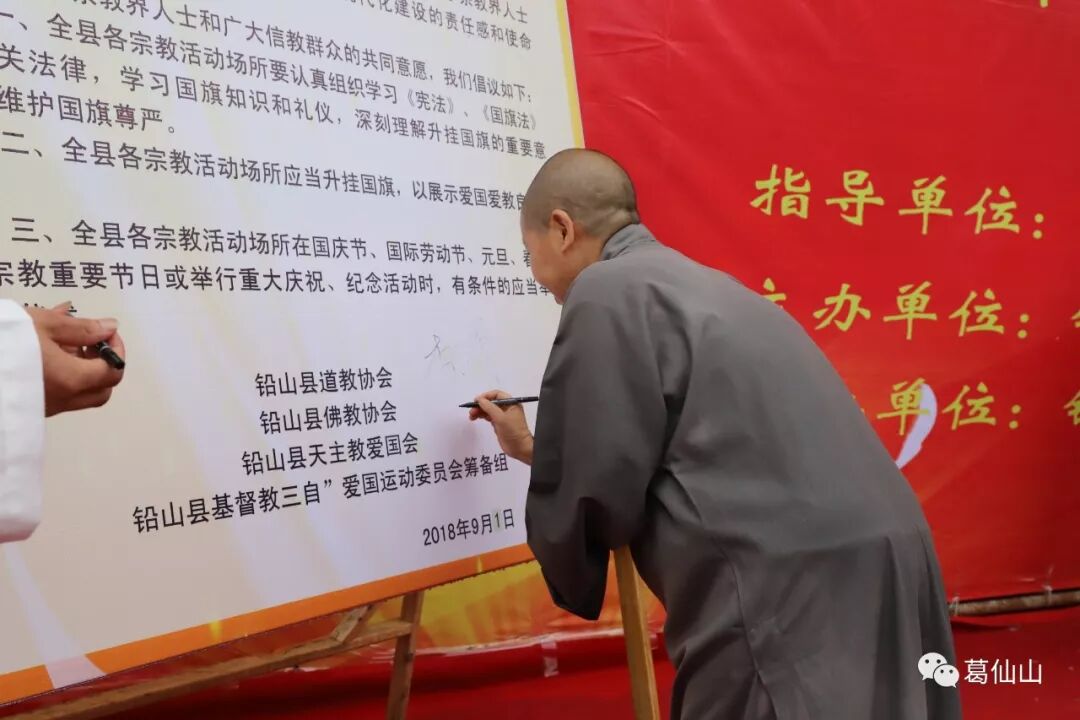 宗教界人士
代化建设的责任感和使命
宗教界人士和广大信教群众的共同意愿，我们倡议如下：
一、全县各宗教活动场所要认真组织学习《宪法》、《国旗法》
关法律，学习国旗知识和礼仪，深刻理解升挂国旗的重要意
维护国旗尊严。
二、全县各宗教活动场所应当升挂国旗，以展示爱国爱教
三、全县各宗教活动场所在国庆节、国际劳动节、元旦、春
宗教重要节日或举行重大庆祝、纪念活动时，有条件的应当举
铅山县道教协会
铅山县佛教协会
铅山县天主教爱国会
铅山县基督教三自”爱国运动委员会筹备组
2018年9月1日
指导单位：
主办单位：
单位：
葛仙山